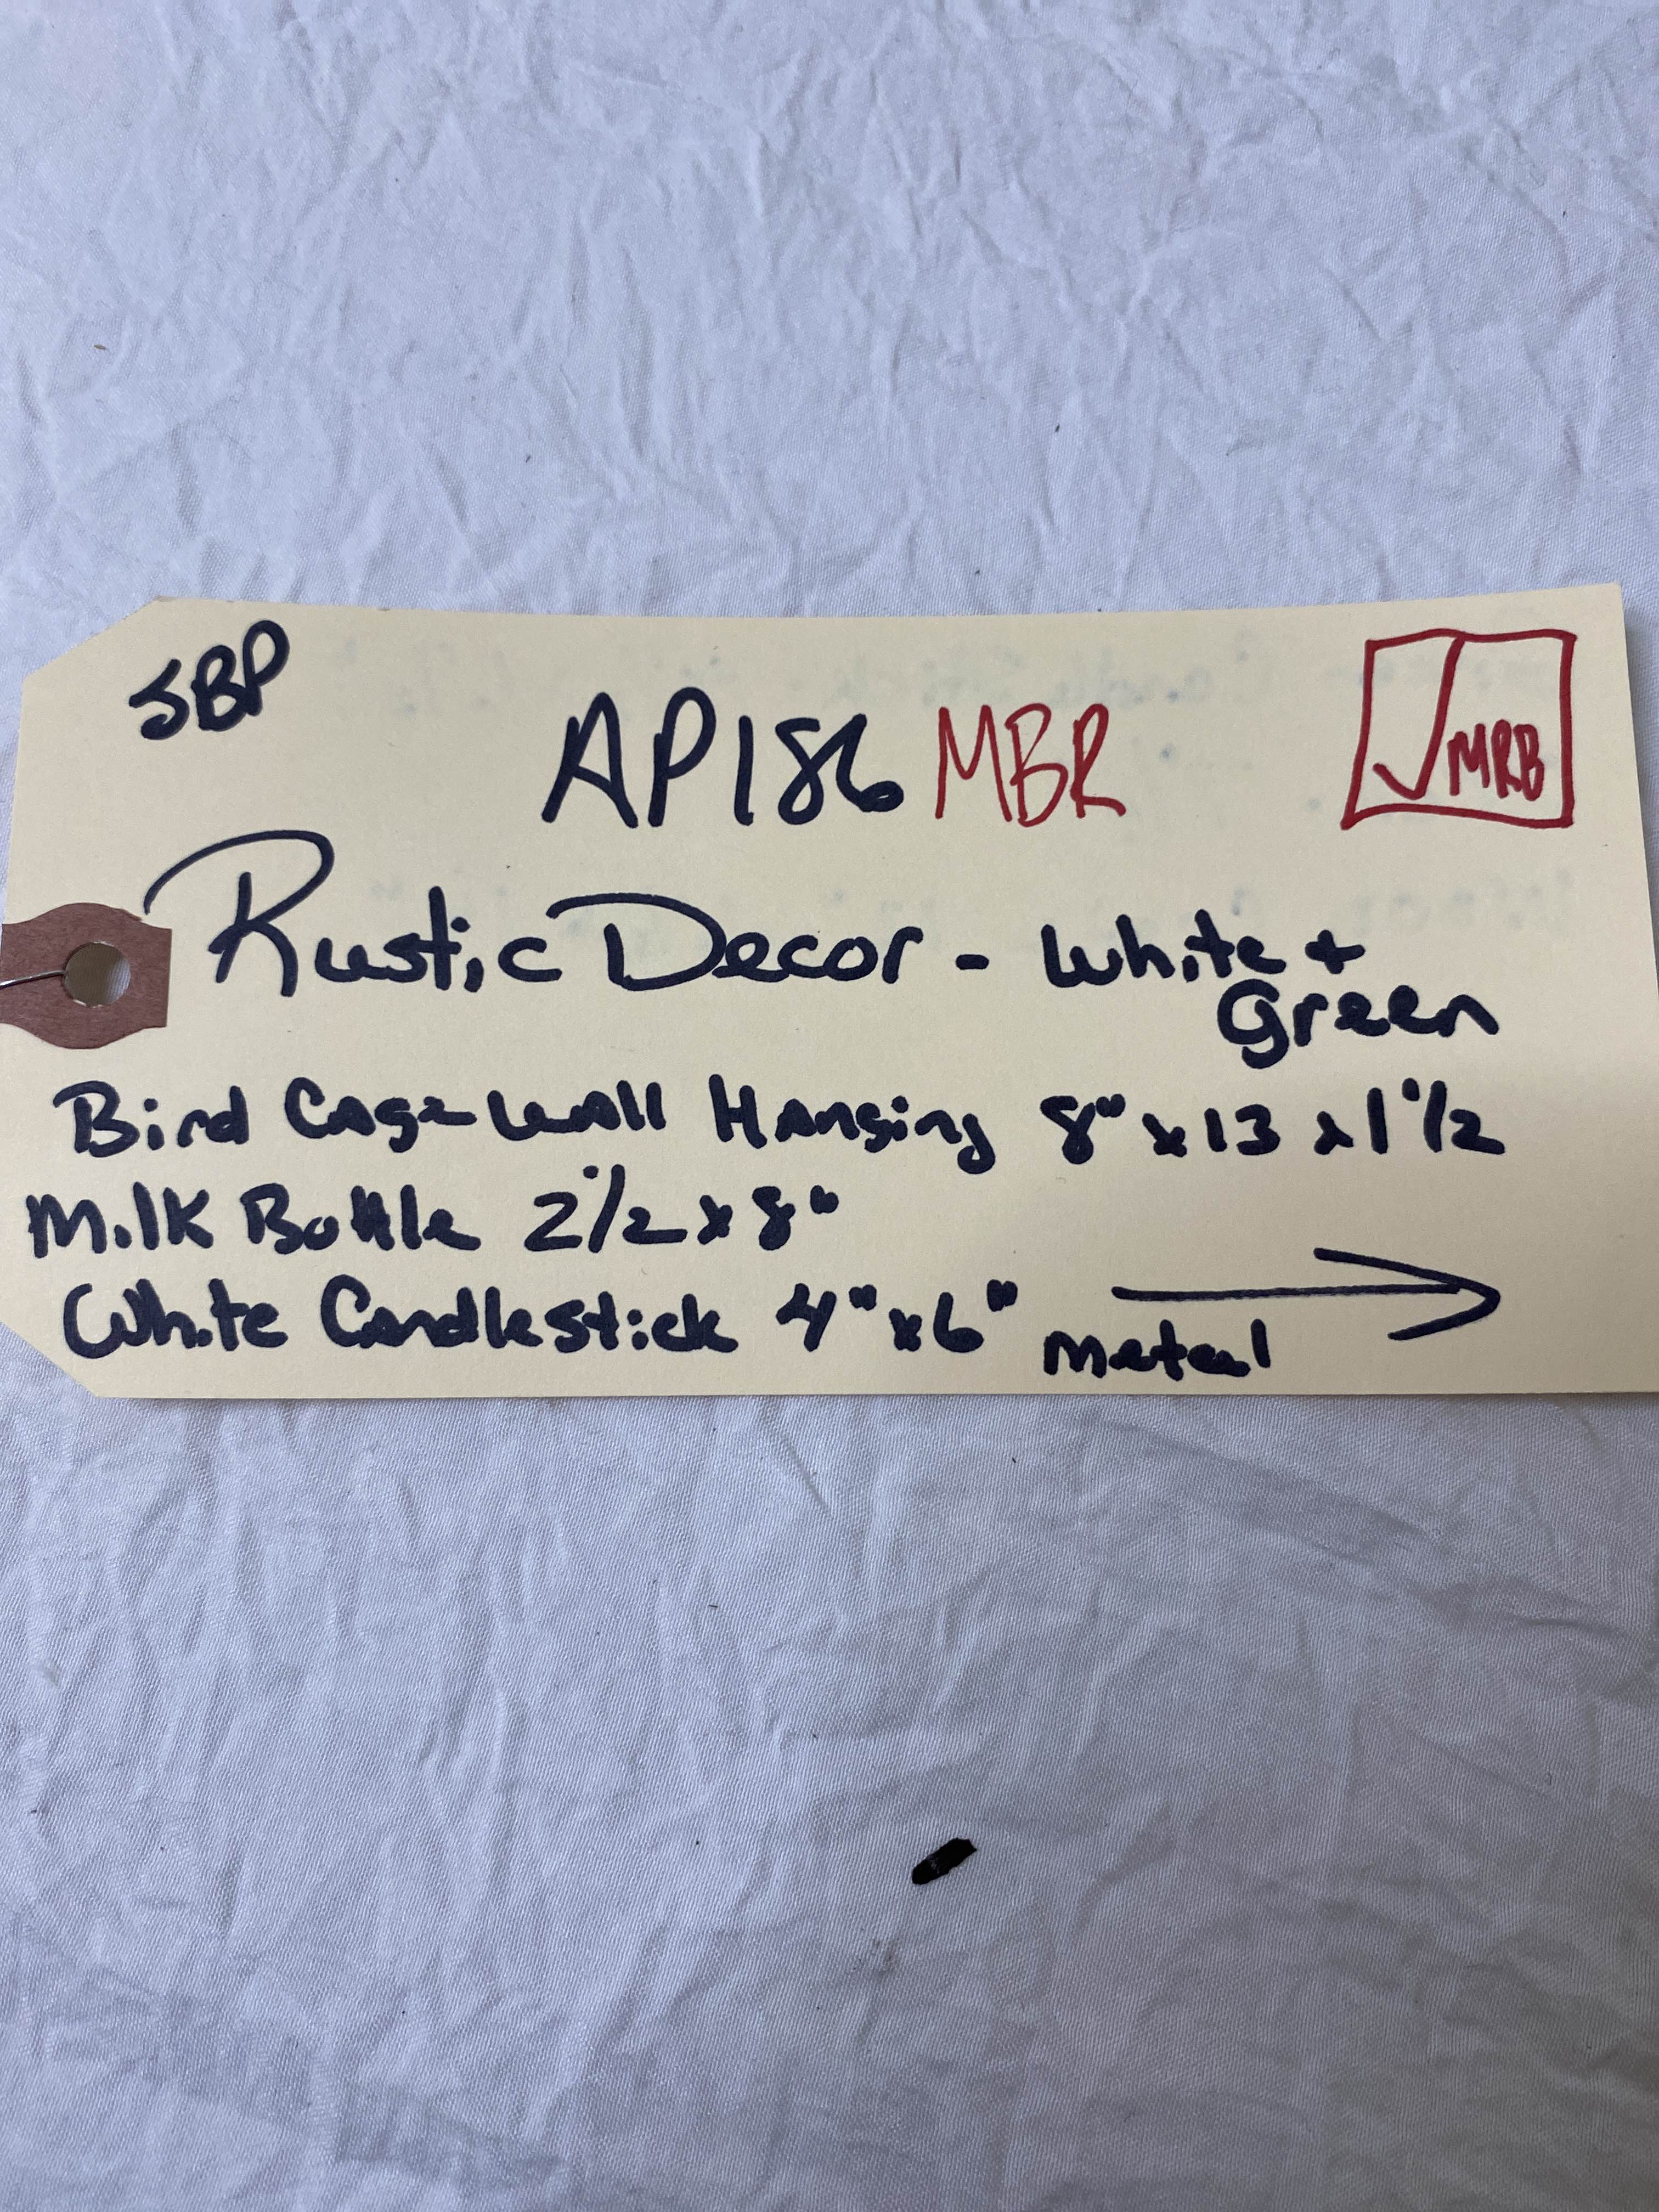 SBP
AP186 MBR
MRB
Rustic Decor - White +
Green
Bird Cage Wall Hanging 8" x 13 x 1 1/2
Milk Bottle 2 1/2 x 8"
White Candlestick 4" x 6"
metal